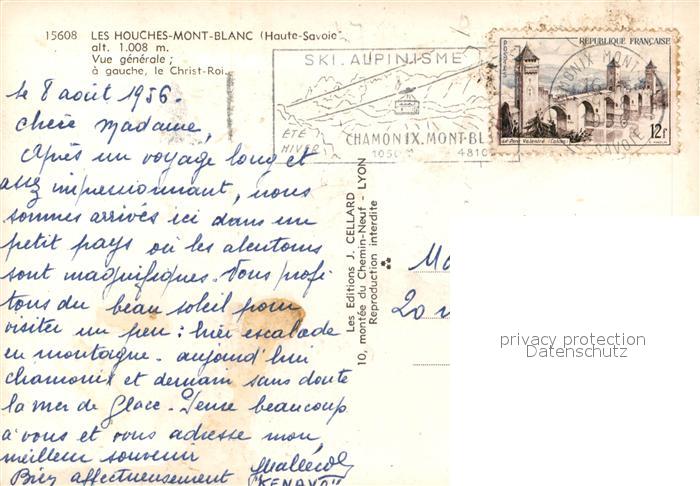 15608 LES HOUCHES-MONT-BLANC (Haute-Savoie)
alt. 1.008 m.
Vue générale ;
à gauche, le Christ-Roi
le 8 août 1956.
Chère Madame,
Après un voyage long et
assez impressionnant, nous
sommes arrivés ici dans un
petit pays où les alentours
sont magnifiques. Nous profi
tons du beau soleil pour
visiter un peu : hier escalade
en montagne. aujourd'hui
chamonix et demain sans doute
la mer de Glace. Pense beaucoup
à vous et vous adresse mon
meilleur souvenir
Bien affectueusement
Les Editions J. CELLARD
10, montée du Chemin-Neuf - LYON
Reproduction interdite
SKI. ALPINISME
ÉTÉ
HIVER
CHAMONIX. MONT-BL
1050 4810
POSTES
REPUBLIQUE FRANÇAISE
Le Pont Valentré (Cahors)
12f
MONIX MONT
SAVOIE
20
privacy protection
Datenschutz